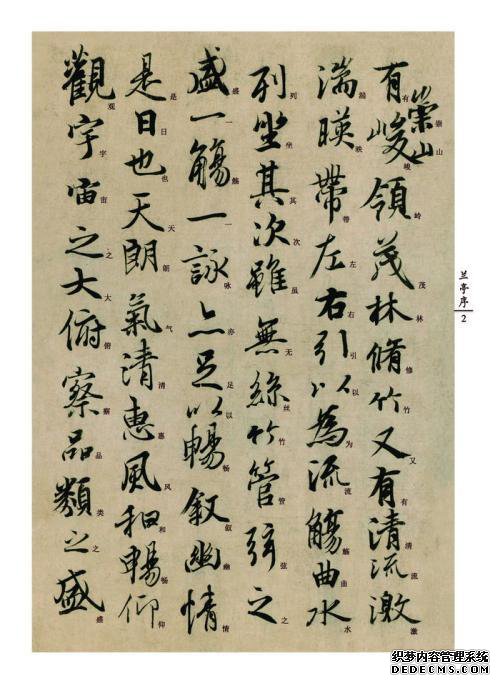 兰亭序
2
有崇山峻領茂林脩竹又有清流激
有崇山峻岭茂林修竹又有清流激
湍暎帶左右引以為流觴曲水
湍映带左右引以为流觞曲水
列坐其次雖無絲竹管弦之
列坐其次虽无丝竹管弦之
盛一觴一詠亦足以暢叙幽情
盛一觞一咏亦足以畅叙幽情
是日也天朗氣清惠風和暢仰
是日也天朗气清惠风和畅仰
觀宇宙之大俯察品類之盛
观宇宙之大俯察品类之盛
织梦内容管理系统
DEDECMS.COM